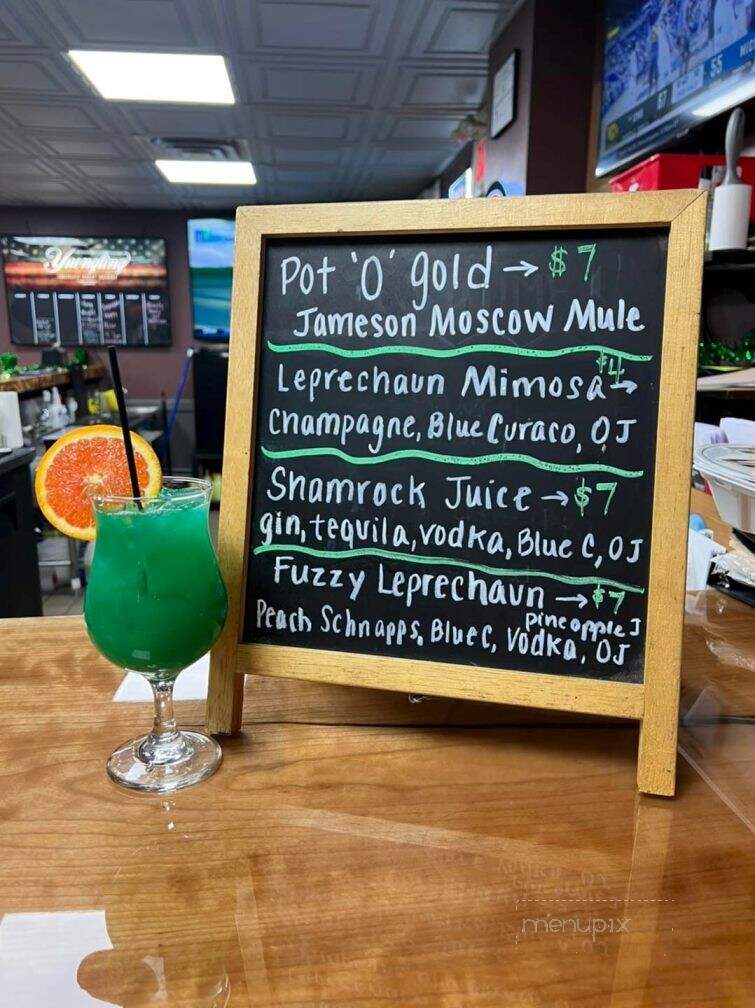 Pot 'O' gold → $7
Jameson Moscow Mule
Leprechaun Mimosa $4 →
Champagne, Blue Curaco, OJ
Shamrock Juice → $7
gin, tequila, vodka, Blue C, OJ
Fuzzy Leprechaun → $7
pineapple J
Peach Schnapps, Blue C, Vodka, OJ
Yuengling
67
55
menupix